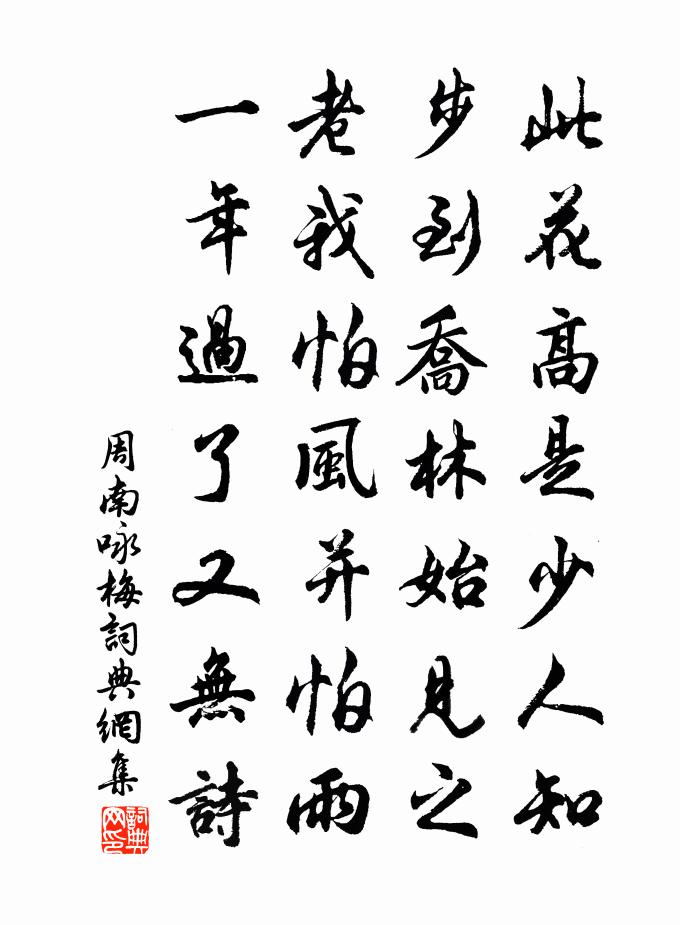 此花高是少人知
步到喬林始見之
老我怕風并怕雨
一年過了又無詩
周南咏梅詞典網集
詞典
网印